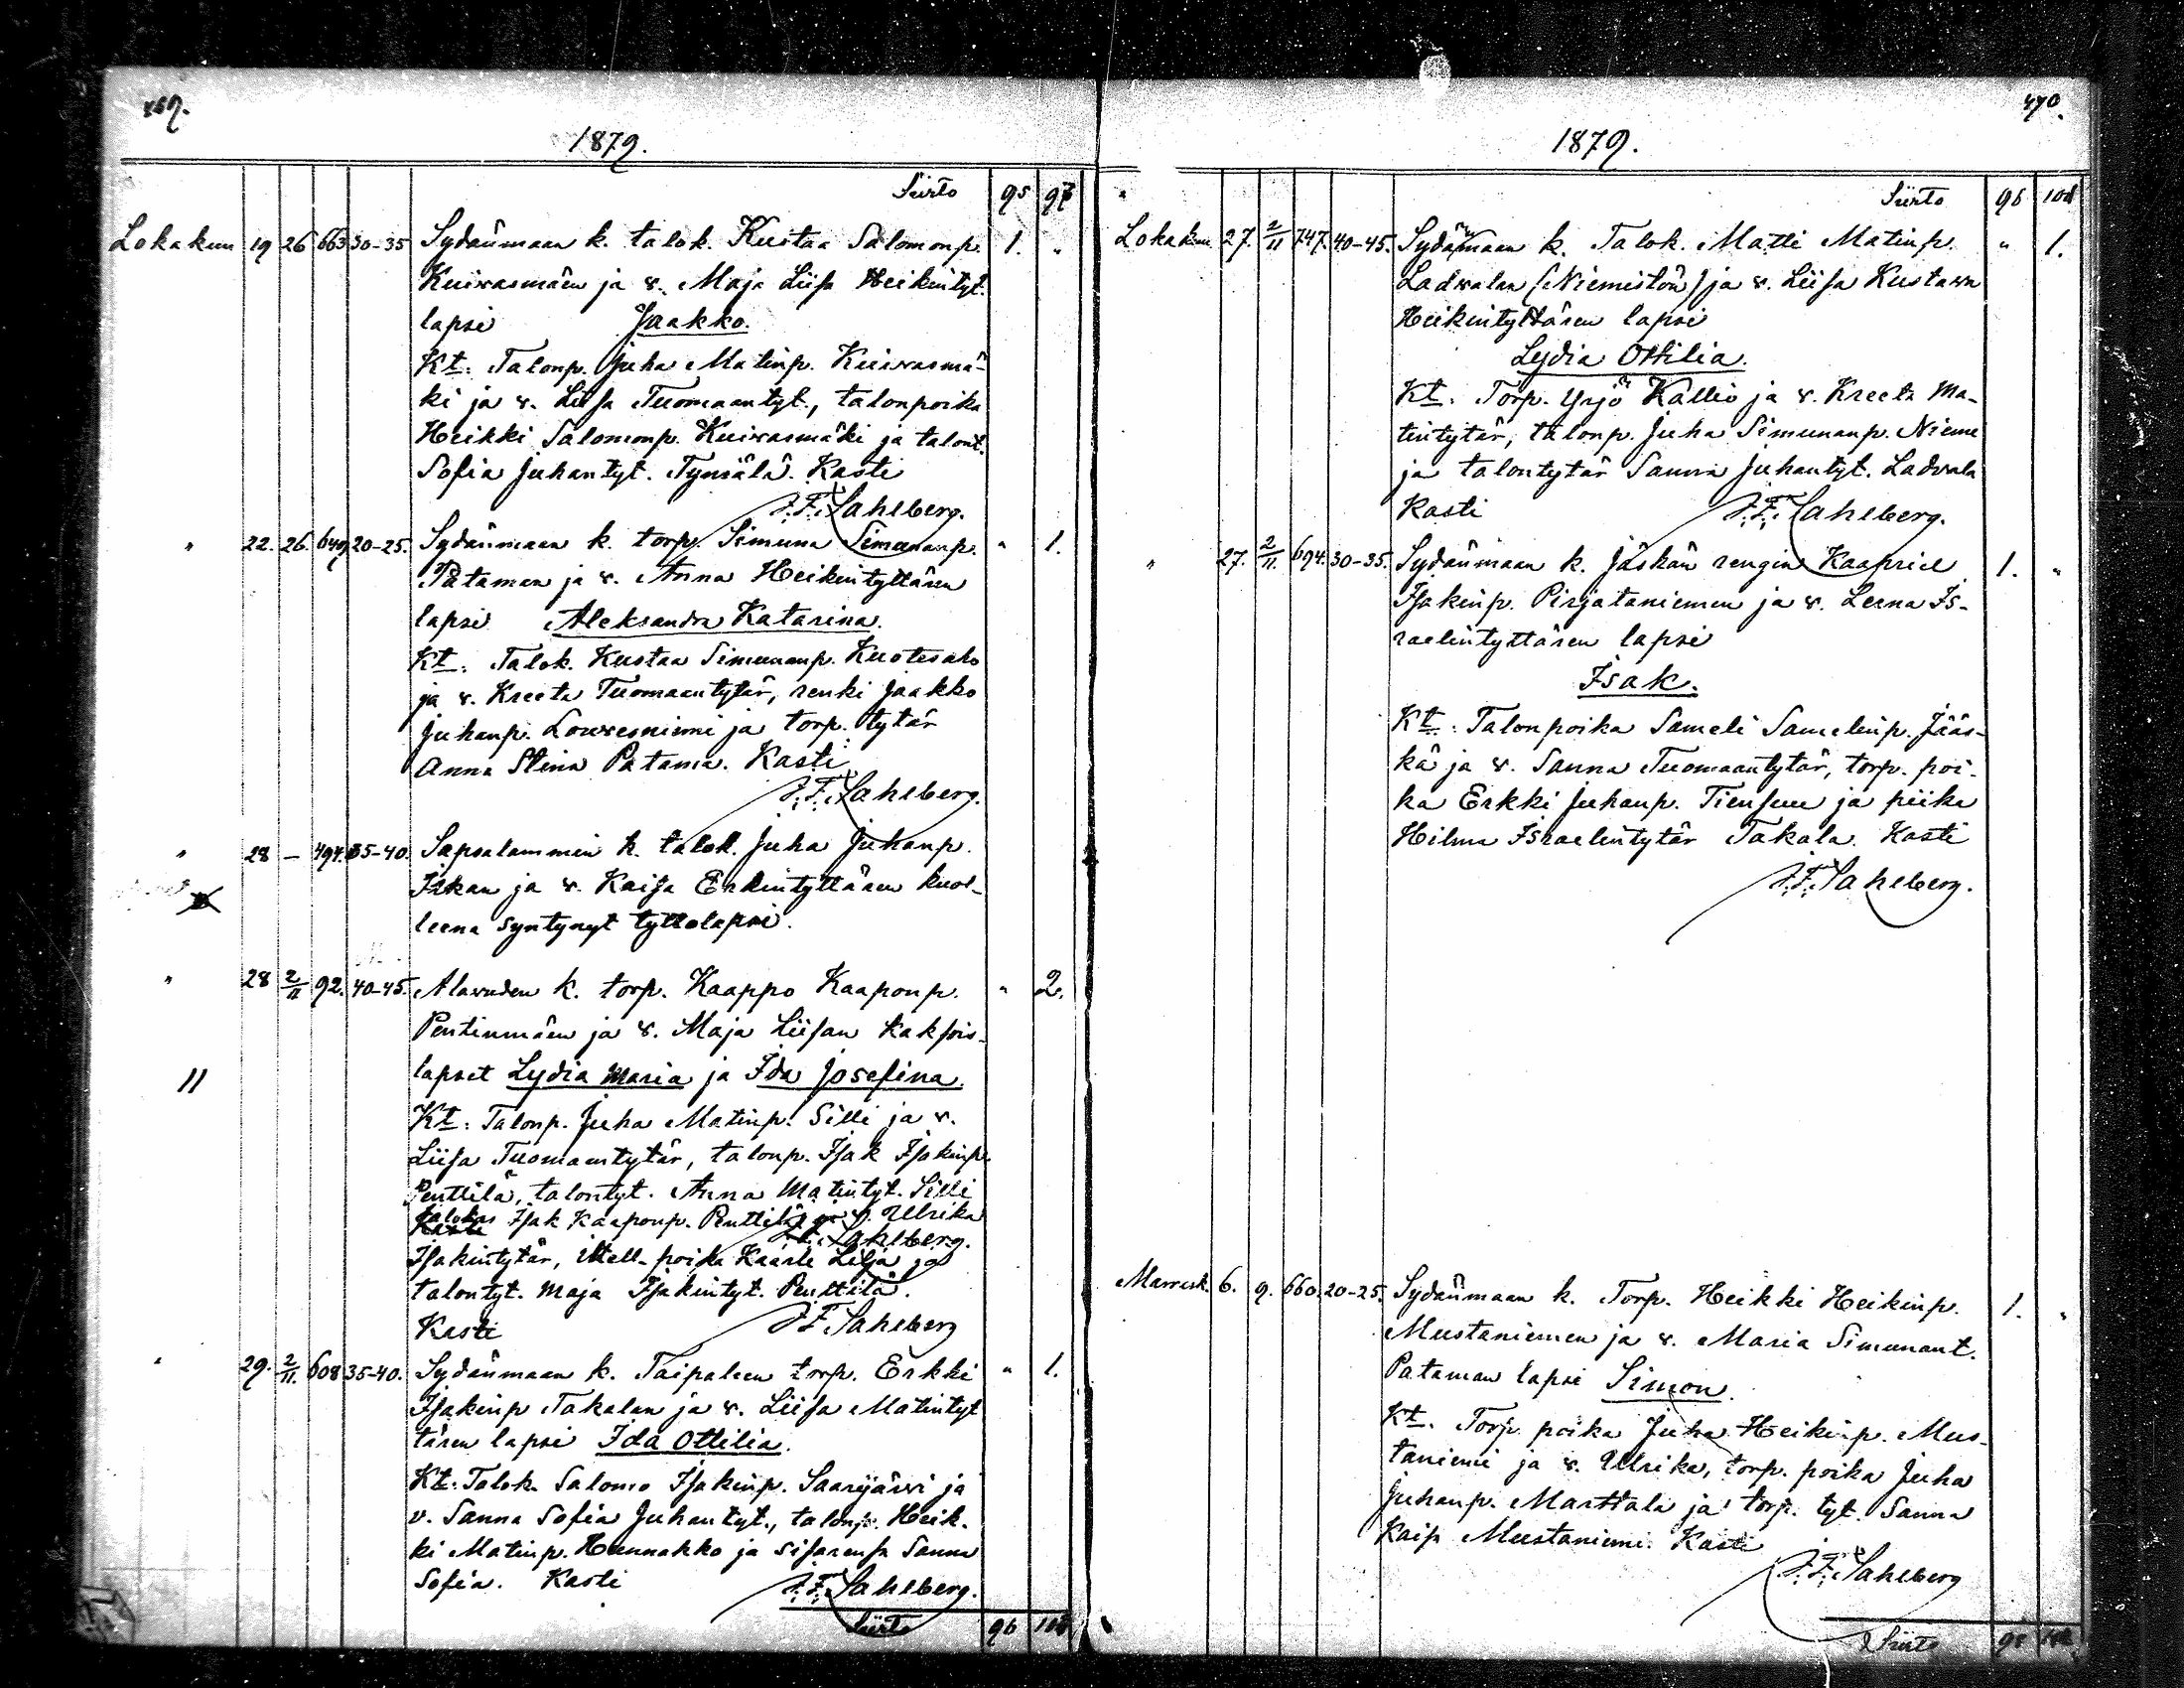 469.
1879.
Siirto 95 97
Lokakuu 19 26 663 30-35 Sydänmaan k. talok. Kustaa Salomonp. 1. "
Kuivasmäen ja v. Maja Liisa Heikintyt.
lapsi Jaakko.
Kt: Talonp. Juha Matinp. Kuivasmä-
ki ja v. Liisa Tuomaantyt., talonpoika
Heikki Salomonp. Kuivasmäki ja talont.
Sofia Juhantyt. Tynjälä. Kasti
J.F. Sahlberg.
" 22. 26. 649 20-25. Sydänmaan k. torp. Simuna Simunanp. " 1.
Pataman ja v. Anna Heikintyttären
lapsi Aleksandra Katarina.
Kt: Talok. Kustaa Simunanp. Kuotesaho
ja v. Kreeta Tuomaantytär, renki Jaakko
Juhanp. Louvesniemi ja torp. tytär
Anna Stina Patama. Kasti
J.F. Sahlberg.
" 28 — 494. 35-40. Sapsalammin k. talok. Juha Juhanp.
Iskan ja v. Kaisa Erkintyttären kuol-
leena syntynyt tyttolapsi.
" 28 2/11 92. 40-45. Alavuden k. torp. Kaappo Kaaponp. " 2.
Pentinmäen ja v. Maja Liisan kaksois-
11 lapset Lydia Maria ja Ida Josefina.
Kt: Talonp. Juha Matinp. Silli ja v.
Liisa Tuomaantytär, talonp. Isak Isakinp.
Penttilä, talontyt. Anna Matintyt. Silli
talokas Isak Kaaponp. Penttilä ja v. Ulrika
Kasti J.F. Sahlberg.
Isakintytär, itsell. poika Kaarle Lilja ja
talontyt. Maja Isakintyt. Penttilä.
Kasti J.F. Sahlberg
" 29. 2/11. 608 35-40. Sydänmaan k. Taipaleen torp. Erkki " 1.
Isakinp Takalan ja v. Liisa Matintyt
tären lapsi Ida Ottilia.
Kt: Talok. Salomo Isakinp. Saarijärvi ja
v. Sanna Sofia Juhantyt., talonp. Heik-
ki Matinp. Hunnakko ja sisarensa Sanna
Sofia. Kasti J.F. Sahlberg.
Siirto 96
470.
1879.
Siirto 96
Lokakuu 27. 2/11 747. 40-45. Sydänmaan k. Talok. Matti Matinp. " 1.
Ladvalan (Niemistön) ja v. Liisa Kustava
Heikintyttären lapsi
Lydia Ottilia.
Kt: Torp. Yrjö Kallio ja v. Kreeta Ma-
tintytär, talonp. Juha Simunanp. Nieme
ja talontytär Sanna Juhantyt. Ladvala
Kasti J.F. Sahlberg.
" 27. 2/11. 694. 30-35. Sydänmaan k. Jäskän rengin Kaapriel 1. "
Isakinp. Pirjataniemen ja v. Leena Is-
raelintyttären lapsi
Isak.
Kt: Talonpoika Sameli Samelinp. Jääs-
kä ja v. Sanna Tuomaantytär, torp. poi-
ka Erkki Juhanp. Tiensuu ja piika
Hilma Israelintytär Takala. Kasti
J.F. Sahlberg.
Marrask. 6. 9. 660. 20-25. Sydänmaan k. Torp. Heikki Heikinp. 1. "
Mustaniemen ja v. Maria Simunant.
Pataman lapsi Simon.
Kt. Torp. poika Juha Heikinp. Mus-
taniemi ja v. Ulrika, torp. poika Juha
Juhanp. Marttala ja torp. tyt. Sanna
Kaisa Mustaniemi. Kasti
J.F. Sahlberg
Siirto